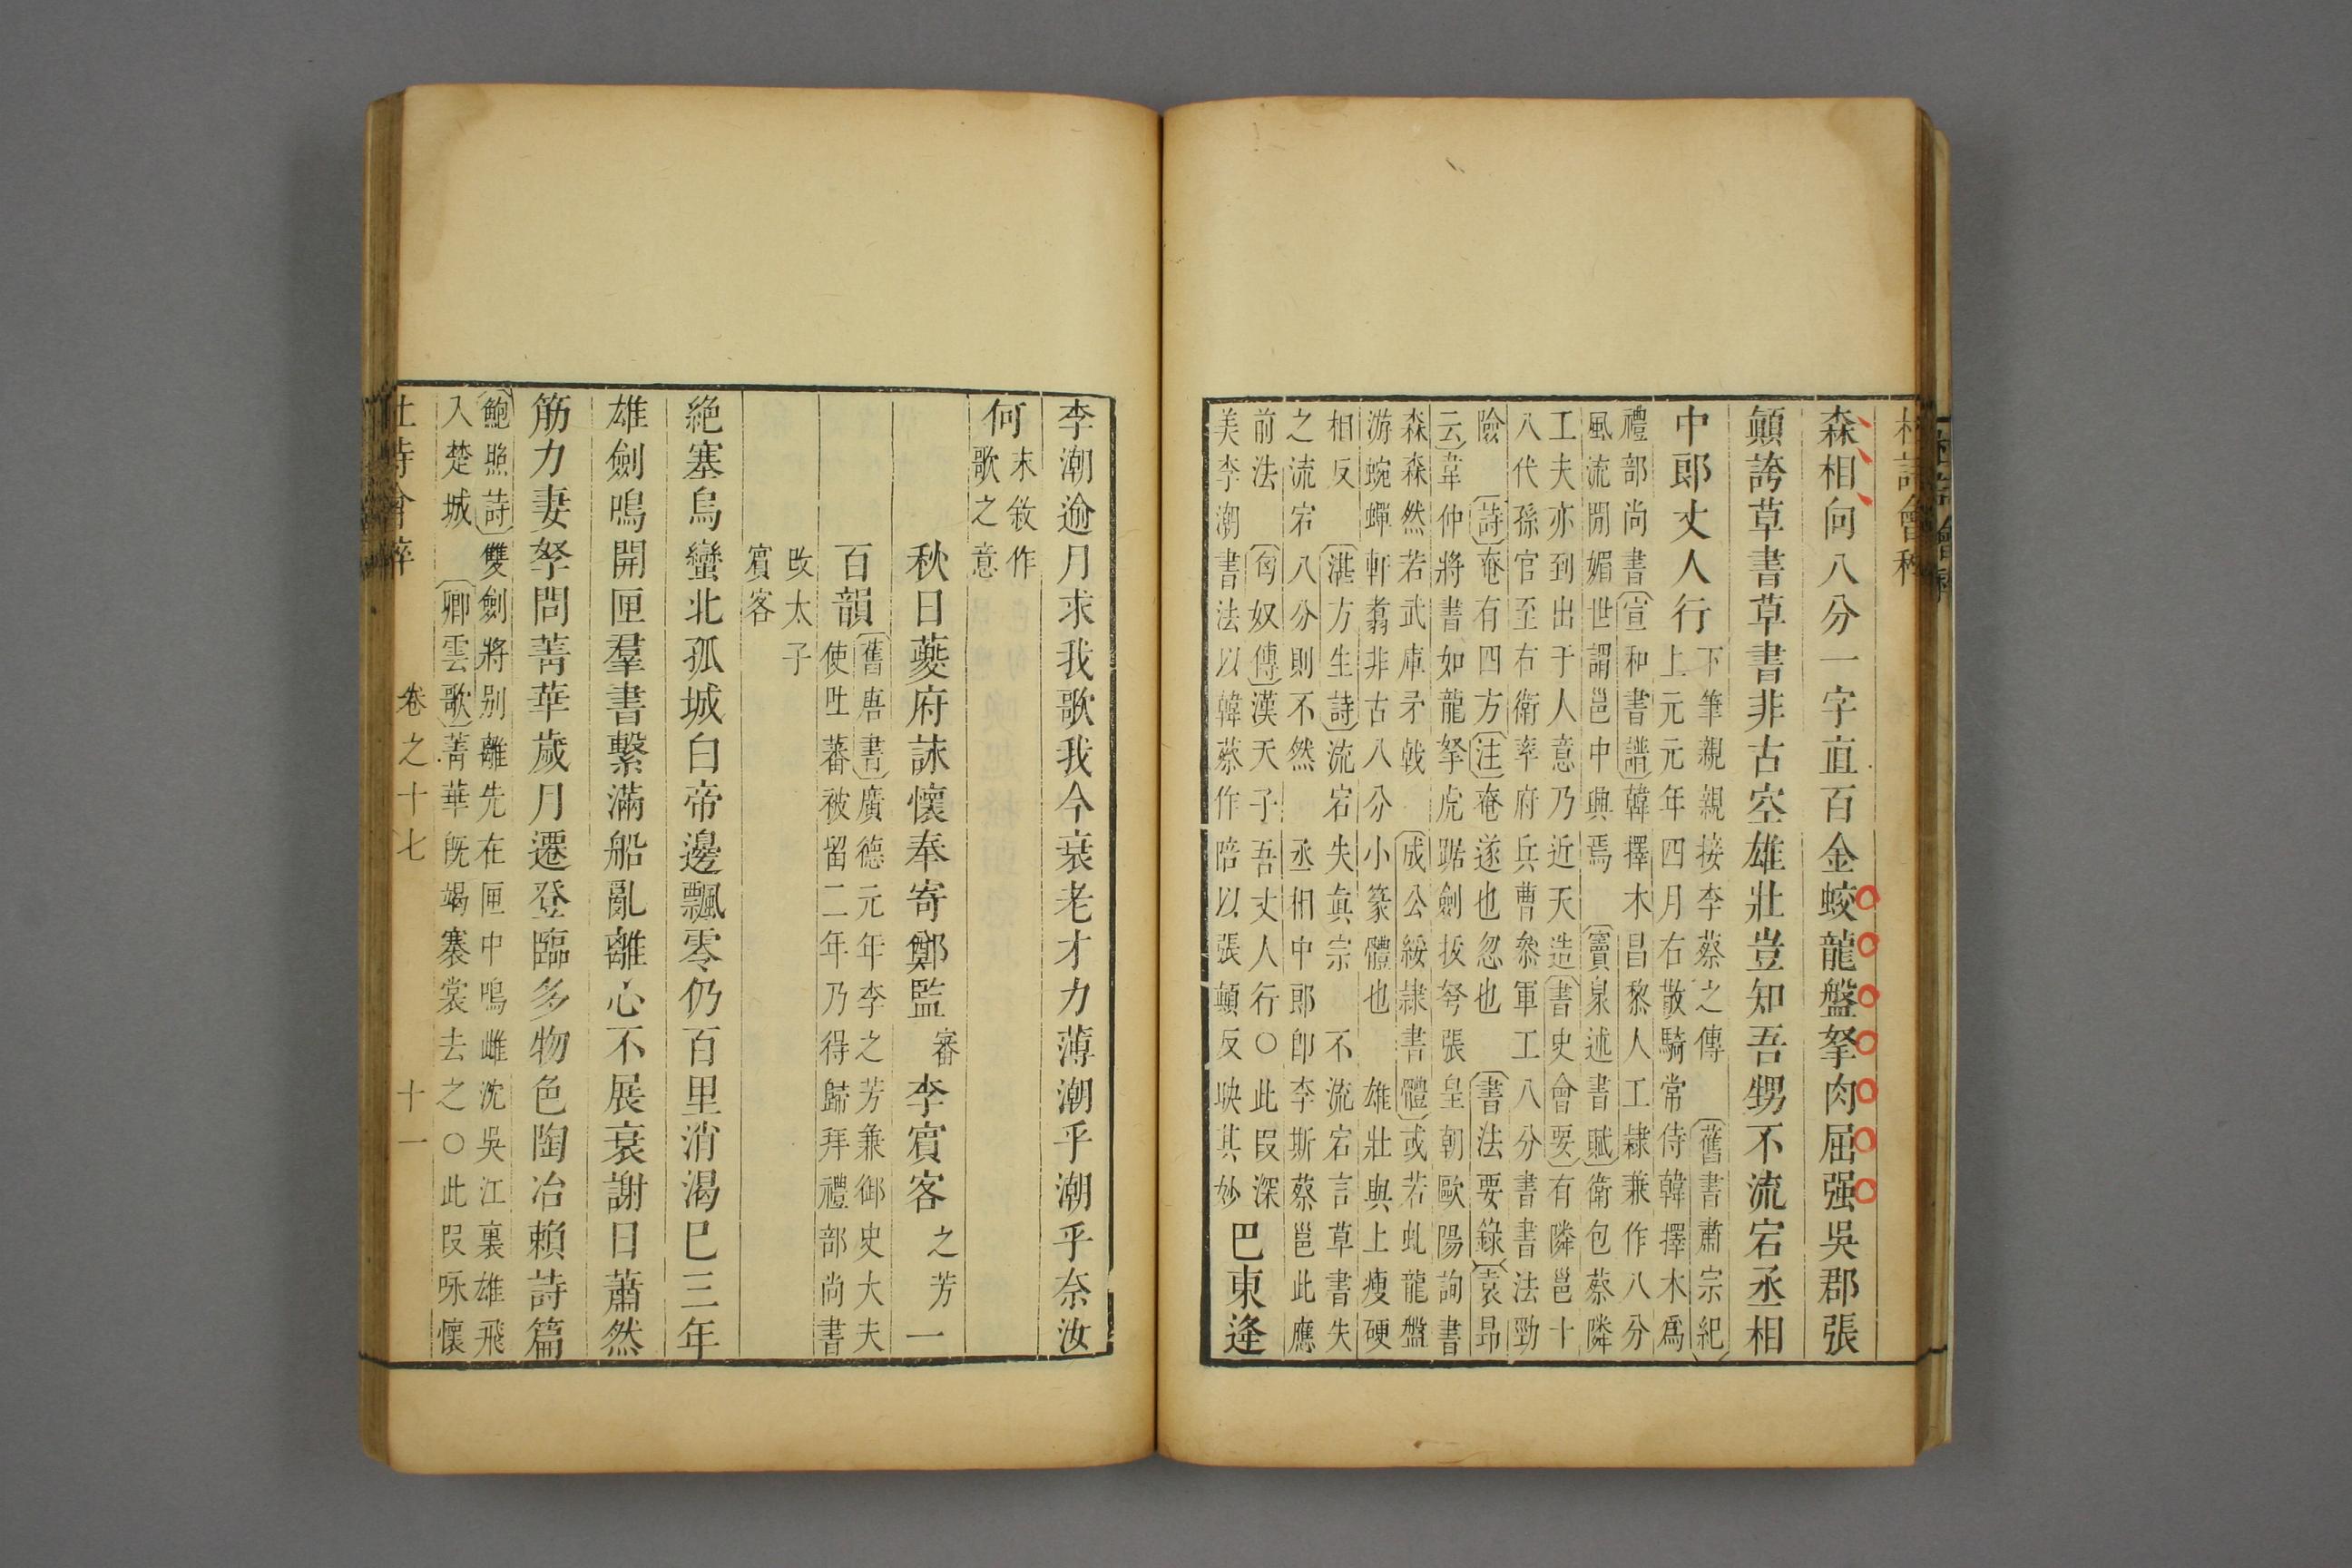 杜詩會稡
森相向八分一字直百金蛟龍盤拏肉屈强吳郡張
顛誇草書草書非古空雄壯豈知吾甥不流宕丞相
中郎丈人行
下筆親親接李蔡之傳〔舊書肅宗紀〕
上元元年四月右散騎常侍韓擇木爲
禮部尚書〔宣和書譜〕韓擇木昌黎人工隷兼作八分
風流閒媚世謂邕中興焉〔竇臮述書賦〕衛包蔡隣
工夫亦到出于人意乃近天造〔書史會要〕有隣邕十
八代孫官至右衛率府兵曹叅軍工八分書書法勁
險〔詩〕奄有四方〔注〕奄遂也忽也〔書法要錄〕〔袁昂
云〕韋仲將書如龍拏虎踞劍拔弩張皇朝歐陽詢書
森森然若武庫矛戟〔成公綏隷書體〕或若虬龍盤
游蜿蟬軒翥非古八分小篆體也 雄壯與上瘦硬
相反〔湛方生詩〕流宕失眞宗 不流宕言草書失
之流宕八分則不然 丞相中郎卽李斯蔡邕此應
前法〔匈奴傳〕漢天子吾丈人行○此叚深
美李潮書法以韓蔡作陪以張顛反映其妙
巴東逢
李潮逾月求我歌我今衰老才力薄潮乎潮乎奈汝
何
末敘作
歌之意
秋日夔府詠懷奉寄鄭監審李賓客之芳一
百韻
〔舊唐書〕廣德元年李之芳兼御史大夫
使吐蕃被留二年乃得歸拜禮部尚書
改太子
賓客
絶塞烏蠻北孤城白帝邊飄零仍百里消渴已三年
雄劍鳴開匣羣書繫滿船亂離心不展衰謝日蕭然
筋力妻孥問菁華歲月遷登臨多物色陶冶賴詩篇
〔鮑照詩〕雙劍將别離先在匣中鳴雌沈吳江裏雄飛
入楚城〔卿雲歌〕菁華旣竭褰裳去之○此叚咏懷
杜詩會稡 卷之十七 十一